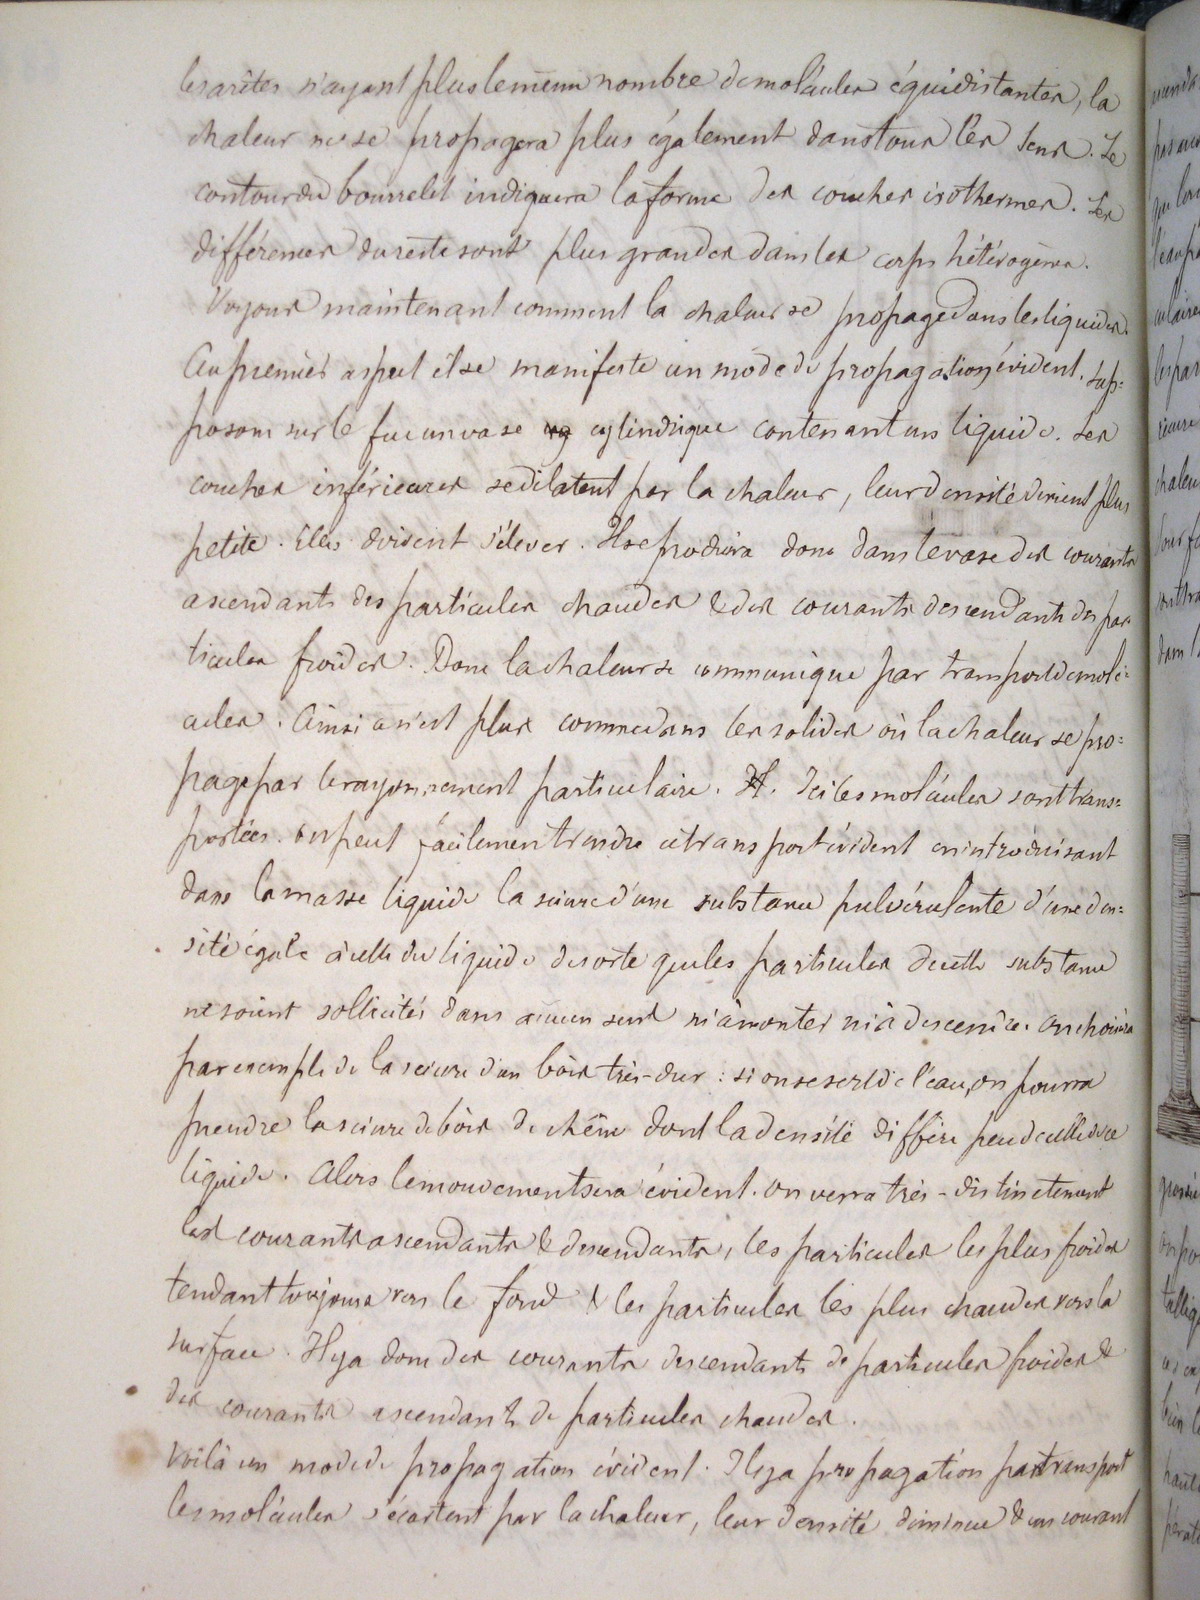 les arêtes n'ayant plus le même nombre de molécules équidistantes, la
chaleur ne se propagera plus également dans tous les sens. Le
contour du bourrelet indiquera la forme des couches isothermes. Les
différences du reste sont plus grandes dans les corps hétérogènes.
Voyons maintenant comment la chaleur se propage dans les liquides.
Au premier aspect il se manifeste un mode de propagation évident. Sup=
posons sur le feu un vase cylindrique contenant un liquide. Les
couches inférieures se dilatent par la chaleur, leur densité devient plus
petite. Elles doivent s'élever. Il se produira donc dans le vase des courants
ascendants des particules chaudes & des courants descendants des par
ticules froides. Donc la chaleur se communique par transport de molé=
cules. Ainsi ce n'est plus comme dans les solides où la chaleur se pro=
page par le rayonnement particulaire. Ici les molécules sont trans=
portées. on peut facilement rendre ce transport évident en introduisant
dans la masse liquide la sciure d'une substance pulvérulente d'une den=
sité égale à celle du liquide de sorte que les particules de cette substance
ne soient sollicités dans aucun sens ni à monter ni à descendre. on choisira
par exemple de la sciure d'un bois très-dur : si on se sert de l'eau, on pourra
prendre la sciure de bois de chêne dont la densité diffère peu de celle de ce
liquide. Alors le mouvement sera évident. on verra très-distinctement
les courants ascendants & descendants, les particules les plus froides
tendant toujours vers le fond & les particules les plus chaudes vers la
surface. Il y a donc des courants descendants de particules froides &
des courants ascendants de particules chaudes.
Voilà un mode de propagation évident. Il y a propagation par transport
les molécules s'écartent par la chaleur, leur densité diminue & un courant